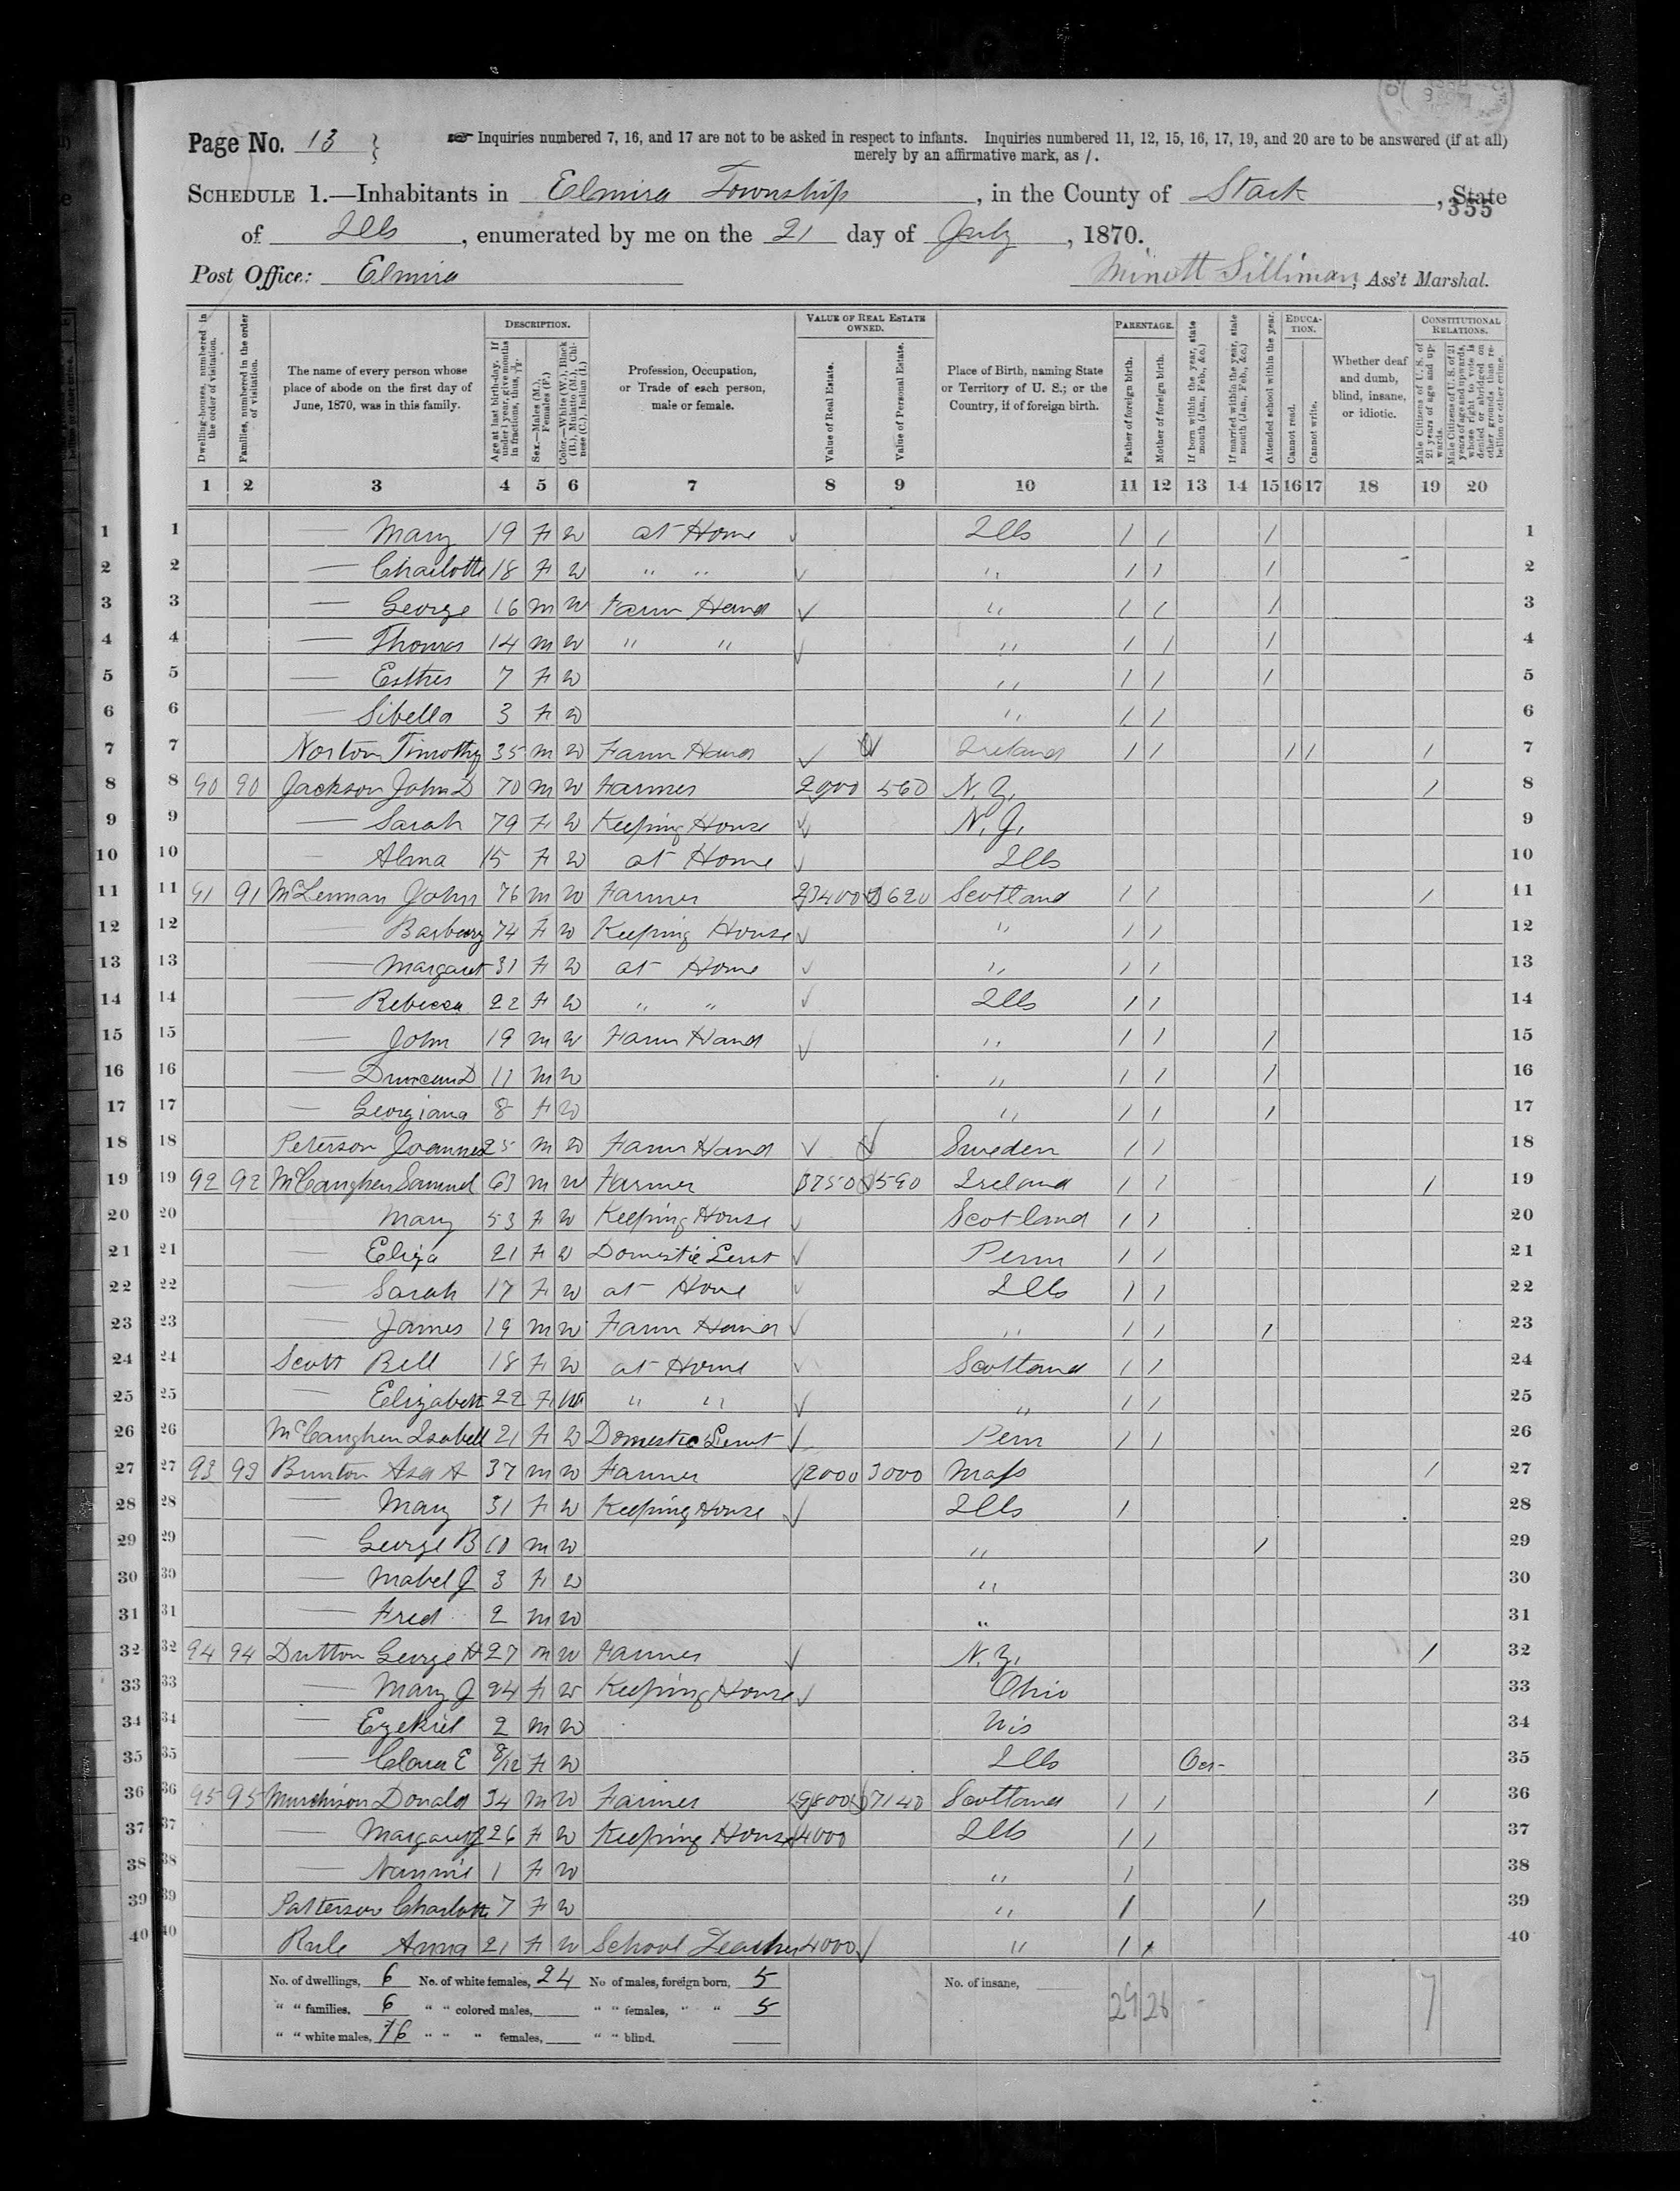 Page No. 13
Inquiries numbered 7, 16, and 17 are not to be asked in respect to infants. Inquiries numbered 11, 12, 15, 16, 17, 19, and 20 are to be answered (if at all)
merely by an affirmative mark, as /.
SCHEDULE 1.—Inhabitants in Elmira Township, in the County of Stark, State
355
of Ills, enumerated by me on the 21 day of July, 1870.
Post Office: Elmira Minott Silliman, Ass't Marshal.
Dwelling-houses, numbered in the order of visitation.
Families, numbered in the order of visitation.
The name of every person whose place of abode on the first day of June, 1870, was in this family.
DESCRIPTION.
Age at last birth-day. If under 1 year, give months in fractions, thus, 3/12.
Sex.—Males (M.), Females (F.)
Color.—White (W.), Black (B.), Mulatto (M.), Chinese (C.), Indian (I.)
Profession, Occupation, or Trade of each person, male or female.
VALUE OF REAL ESTATE OWNED.
Value of Real Estate.
Value of Personal Estate.
Place of Birth, naming State or Territory of U. S.; or the Country, if of foreign birth.
PARENTAGE.
Father of foreign birth.
Mother of foreign birth.
If born within the year, state month (Jan., Feb., &c.)
If married within the year, state month (Jan., Feb., &c.)
Attended school within the year.
EDUCATION.
Cannot read.
Cannot write.
Whether deaf and dumb, blind, insane, or idiotic.
CONSTITUTIONAL RELATIONS.
Male Citizens of U. S. of 21 years of age and upwards.
Male Citizens of U. S. of 21 years of age and upwards, whose right to vote is denied or abridged on other grounds than rebellion or other crime.
1 2 3 4 5 6 7 8 9 10 11 12 13 14 15 16 17 18 19 20
1 — Mary 19 F W at Home Ills / / / 1
2 — Charlotte 18 F W " " " / / / 2
3 — George 16 M W Farm Hand " / / / 3
4 — Thomas 14 M W " " " / / / 4
5 — Esther 7 F W " / / / 5
6 — Sibella 3 F W " / / 6
7 Norton Timothy 35 M W Farm Hand Ireland / / / / / 7
8 90 90 Jackson John D 70 M W Farmer 2900 560 N.Y. / 8
9 — Sarah 79 F W Keeping House N.J. 9
10 — Alma 15 F W at Home Ills 10
11 91 91 McLennan John 76 M W Farmer 23400 1620 Scotland / / / 11
12 — Barbary 74 F W Keeping House " / / 12
13 — Margaret 31 F W at Home " / / 13
14 — Rebecca 22 F W " " Ills / / 14
15 — John 19 M W Farm Hand " / / / 15
16 — Duncan D 11 M W " / / / 16
17 — Georgiana 8 F W " / / / 17
18 Peterson Joannes 25 M W Farm Hand Sweden / / 18
19 92 92 McCaughen Samuel 63 M W Farmer 3750 1590 Ireland / / / 19
20 — Mary 53 F W Keeping House Scotland / / 20
21 — Eliza 21 F W Domestic Servt Penn / / 21
22 — Sarah 17 F W at Home Ills / / 22
23 — James 19 M W Farm Hand " / / / 23
24 Scott Bell 18 F W at Home Scotland / / 24
25 — Elizabeth 22 F W " " " / / 25
26 McCaughen Isabell 21 F W Domestic Servt Penn / / 26
27 93 93 Bunton Asa A 37 M W Farmer 12000 3000 Mass / 27
28 — Mary 31 F W Keeping House Ills / 28
29 — George B 10 M W " / 29
30 — Mabel J 3 F W " 30
31 — Fred 2 M W " 31
32 94 94 Dutton George H 27 M W Farmer N.Y. / 32
33 — Mary J 24 F W Keeping House Ohio 33
34 — Ezekiel 2 M W Wis 34
35 — Clara E 8/12 F W Ills Oct- 35
36 95 95 Murchison Donald 34 M W Farmer 9800 7140 Scotland / / / 36
37 — Margaret J 26 F W Keeping House 4000 Ills / / 37
38 — Nannie 1 F W " / 38
39 Patterson Charlotte 7 F W " / / 39
40 Rule Anna 21 F W School Teacher 4000 " / / 40
No. of dwellings, 6 No. of white females, 24 No of males, foreign born, 5 No. of insane,
" " families, 6 " " colored males, " " females, " " 5 29 26 7
" " white males, 16 " " " females, " " blind,